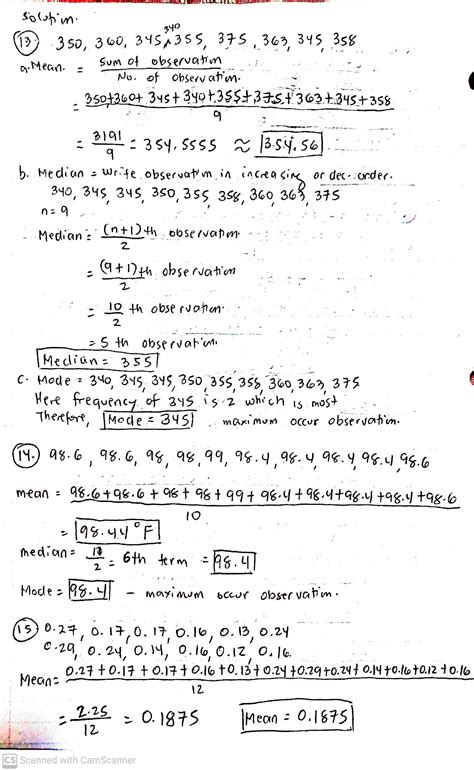 Solution.
340
(13.) 350, 360, 345, 355, 375, 363, 345, 358
a. Mean. = Sum of observation
No. of observation.
= 350+360+ 345+ 340+355+375+363+345+358
9
= 3191
9
= 354.5555 ≈ 354.56
b. Median = Write observation in increasing or dec. order.
340, 345, 345, 350, 355, 358, 360, 363, 375
n = 9
Median = (n+1)th observation
2
= (9+1)th observation
2
= 10 th observation.
2
= 5 th observation.
Median = 355
C. Mode = 340, 345, 345, 350, 355, 358, 360, 363, 375
Here frequency of 345 is 2 which is most
Therefore, Mode = 345 maximum occur observation.
(14.) 98.6, 98.6, 98, 98, 99, 98.4, 98.4, 98.4, 98.4, 98.6
mean = 98.6+98.6+98+98+99+98.4+98.4+98.4+98.4+98.6
10
= 98.44°F
median = 2 = 6th term = 98.4
Mode = 98.4 - maximum occur observation.
(15) 0.27, 0.17, 0.17, 0.16, 0.13, 0.24
0.29, 0.24, 0.14, 0.16, 0.12, 0.16.
Mean = 0.27+0.17+0.17+0.16+0.13+0.24+0.29+0.24+0.14+0.16+0.12+0.16
12
= 2.25
12
= 0.1875 Mean = 0.1875
CS Scanned with CamScanner